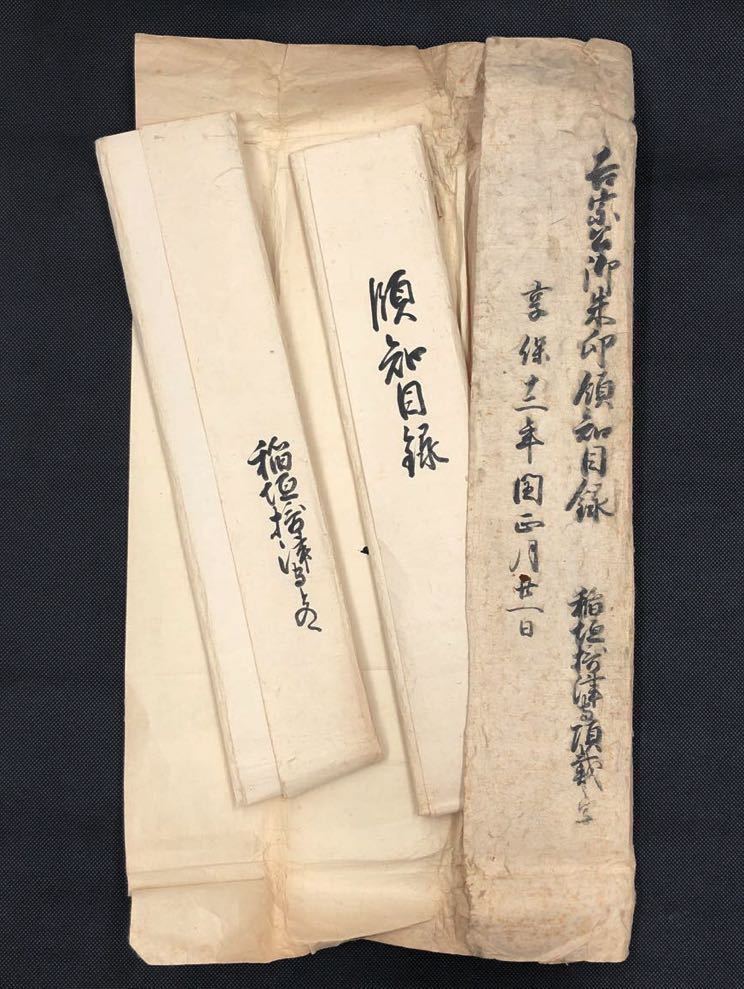 吉宗公御朱印領知目録　稲垣摂津守頂戴之
享保十二年閏正月廿一日
領知目録
稲垣摂津守とのへ